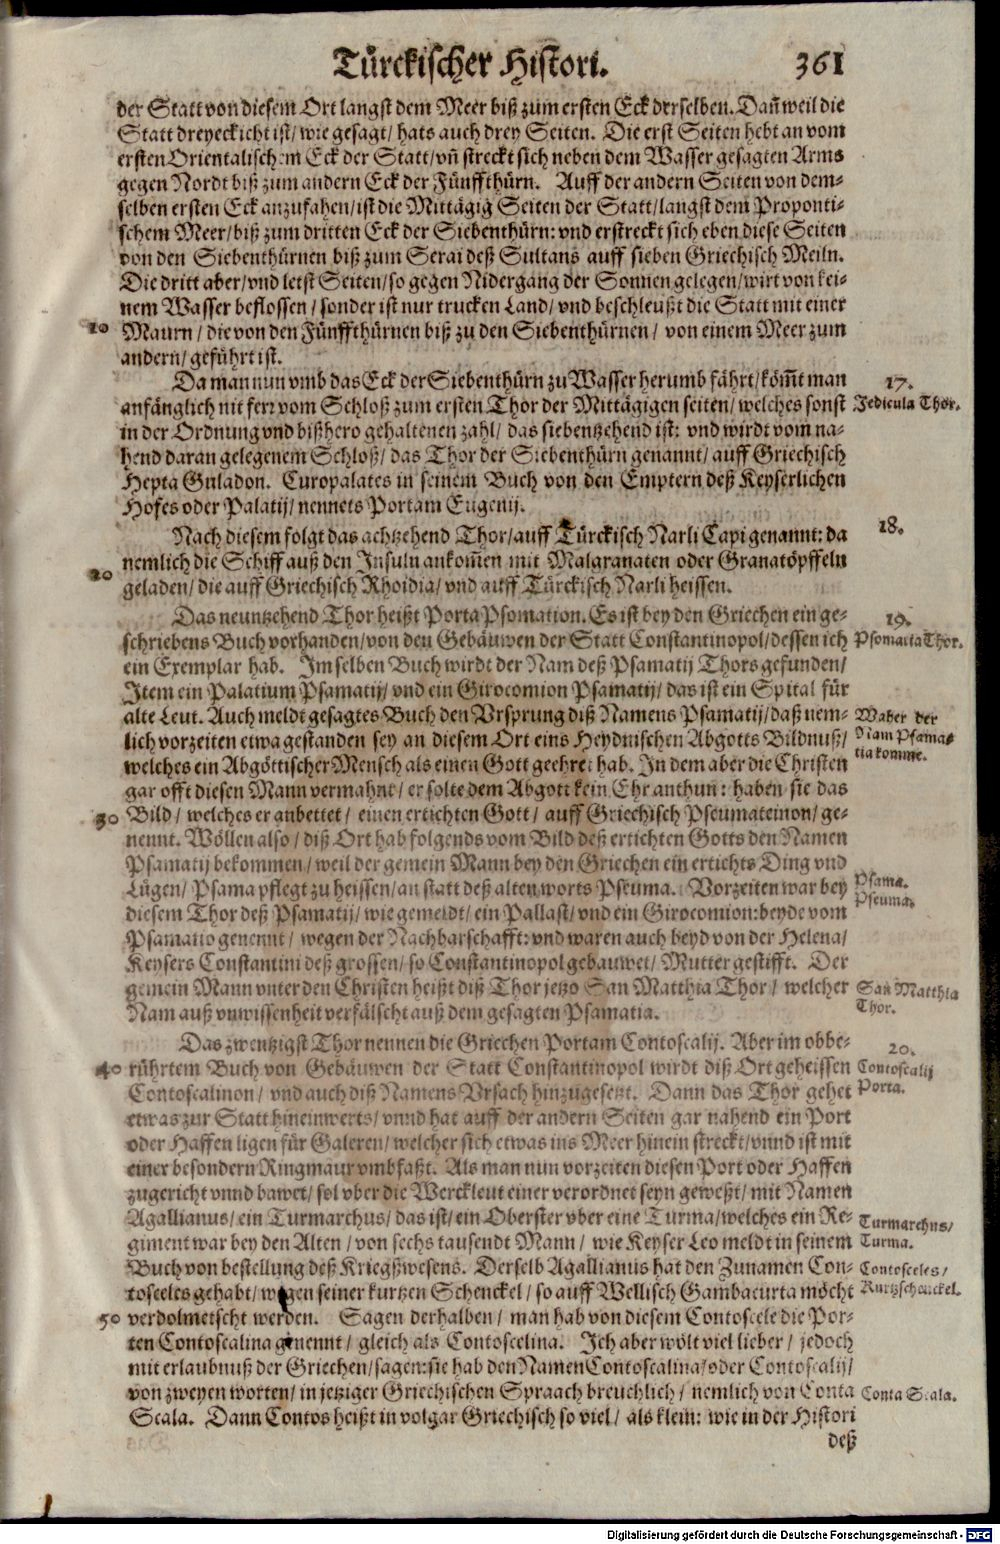 Türckischer Histori. 361
der Statt von diesem Ort langst dem Meer biß zum ersten Eck derselben. Dañ weil die
Statt dreyeckicht ist/ wie gesagt/ hats auch drey Seiten. Die erst Seiten hebt an vom
ersten Orientalischem Eck der Statt/ vñ streckt sich neben dem Wasser gesagten Arms
gegen Nordt biß zum andern Eck der Fünffthürn. Auff der andern Seiten von dem-
selben ersten Eck anzufahen/ ist die Mittägig Seiten der Statt/ langst dem Proponti-
schem Meer/ biß zum dritten Eck der Siebenthürn: vnd erstreckt sich eben diese Seiten
von den Siebenthürnen biß zum Serai deß Sultans auff sieben Griechisch Meiln.
Die dritt aber/ vnd letst Seiten/ so gegen Nidergang der Sonnen gelegen/ wirt von kei-
nem Wasser beflossen/ sonder ist nur trucken Land/ vnd beschleußt die Statt mit einer
10 Maurn/ die von den Fünffthürnen biß zu den Siebenthürnen/ von einem Meer zum
andern/ geführt ist.
Da man nun vmb das Eck der Siebenthürn zu Wasser herumb fährt/ köm̃t man 17.
anfänglich nit ferr vom Schloß zum ersten Thor der Mittägigen seiten/ welches sonst Jedicula Thor.
in der Ordnung vnd bißhero gehaltenen zahl/ das siebentzehend ist: vnd wirdt vom na-
hend daran gelegenem Schloß/ das Thor der Siebenthürn genannt/ auff Griechisch
Hepta Guladon. Curopalates in seinem Buch von den Emptern deß Keyserlichen
Hofes oder Palatij/ nennets Portam Eugenij.
Nach diesem folgt das achtzehend Thor/ auff Türckisch Narli Capi genannt: da 18.
nemlich die Schiff auß den Insuln ankom̃en mit Malgranaten oder Granatöpffeln
20 geladen/ die auff Griechisch Rhoidia/ vnd auff Türckisch Narli heissen.
Das neuntzehend Thor heißt Porta Psomation. Es ist bey den Griechen ein ge- 19.
schriebens Buch vorhanden/ von den Gebäuwen der Statt Constantinopol/ dessen ich Psomatia Thor.
ein Exemplar hab. Im selben Buch wirdt der Nam deß Psamatij Thors gefunden/
Item ein Palatium Psamatij/ vnd ein Girocomion Psamatij/ das ist ein Spital für
alte Leut. Auch meldt gesagtes Buch den Vrsprung diß Namens Psamatij/ daß nem- Waher der
lich vorzeiten etwa gestanden sey an diesem Ort eins Heydnischen Abgotts Bildnuß/ Nam Psama-
welches ein Abgöttischer Mensch als einen Gott geehret hab. In dem aber die Christen tia komme.
gar offt diesen Mann vermahnt/ er solte dem Abgott kein Ehr anthun: haben sie das
30 Bild/ welches er anbettet/ einen ertichten Gott/ auff Griechisch Pseumateinon/ ge-
nennt. Wöllen also/ diß Ort hab folgends vom Bild deß ertichten Gotts den Namen
Psamatij bekommen/ weil der gemein Mann bey den Griechen ein ertichts Ding vnd
Lügen/ Psama pflegt zu heissen/ an statt deß alten worts Pseuma. Vorzeiten war bey Psama.
diesem Thor deß Psamatij/ wie gemeldt/ ein Pallast/ vnd ein Girocomion: beyde vom Pseuma.
Psamatio genennt/ wegen der Nachbarschafft: vnd waren auch beyd von der Helena/
Keysers Constantini deß grossen/ so Constantinopol gebauwet/ Mutter gestifft. Der
gemein Mann vnter den Christen heißt diß Thor jetzo San Matthia Thor/ welcher San Matthia
Nam auß vnwissenheit verfälscht auß dem gesagten Psamatia. Thor.
Das zwentzigst Thor nennen die Griechen Portam Contoscalij. Aber im obbe- 20.
40 rührtem Buch von Gebäuwen der Statt Constantinopol wirdt diß Ort geheissen Contoscalij
Contoscalinon/ vnd auch diß Namens Vrsach hinzugesetzt. Dann das Thor gehet Porta.
etwas zur Statt hineinwerts/ vnnd hat auff der andern Seiten gar nahend ein Port
oder Haffen ligen für Galeren/ welcher sich etwas ins Meer hinein streckt/ vnnd ist mit
einer besondern Ringmaur vmbfaßt. Als man nun vorzeiten diesen Port oder Haffen
zugericht vnnd bawet/ sol vber die Werckleut einer verordnet seyn geweßt/ mit Namen
Agallianus/ ein Turmarchus/ das ist/ ein Oberster vber eine Turma/ welches ein Re- Turmarchus/
giment war bey den Alten/ von sechs tausendt Mann/ wie Keyser Leo meldt in seinem Turma.
Buch von bestellung deß Kriegßwesens. Derselb Agallianus hat den Zunamen Con- Contosceles/
tosceles gehabt/ wegen seiner kurtzen Schenckel/ so auff Wellisch Gambacurta möcht Kurtzschenckel.
50 verdolmetscht werden. Sagen derhalben/ man hab von diesem Contoscele die Por-
ten Contoscalina genennt/ gleich als Contoscelina. Ich aber wölt viel lieber/ jedoch
mit erlaubnuß der Griechen/ sagen: sie hab den Namen Contoscalina/ oder Contoscalij/
von zweyen worten/ in jetziger Griechischen Spraach breuchlich/ nemlich von Conta Conta Scala.
Scala. Dann Contos heißt in volgar Griechisch so viel/ als klein: wie in der Histori
deß
Digitalisierung gefördert durch die Deutsche Forschungsgemeinschaft - DFG